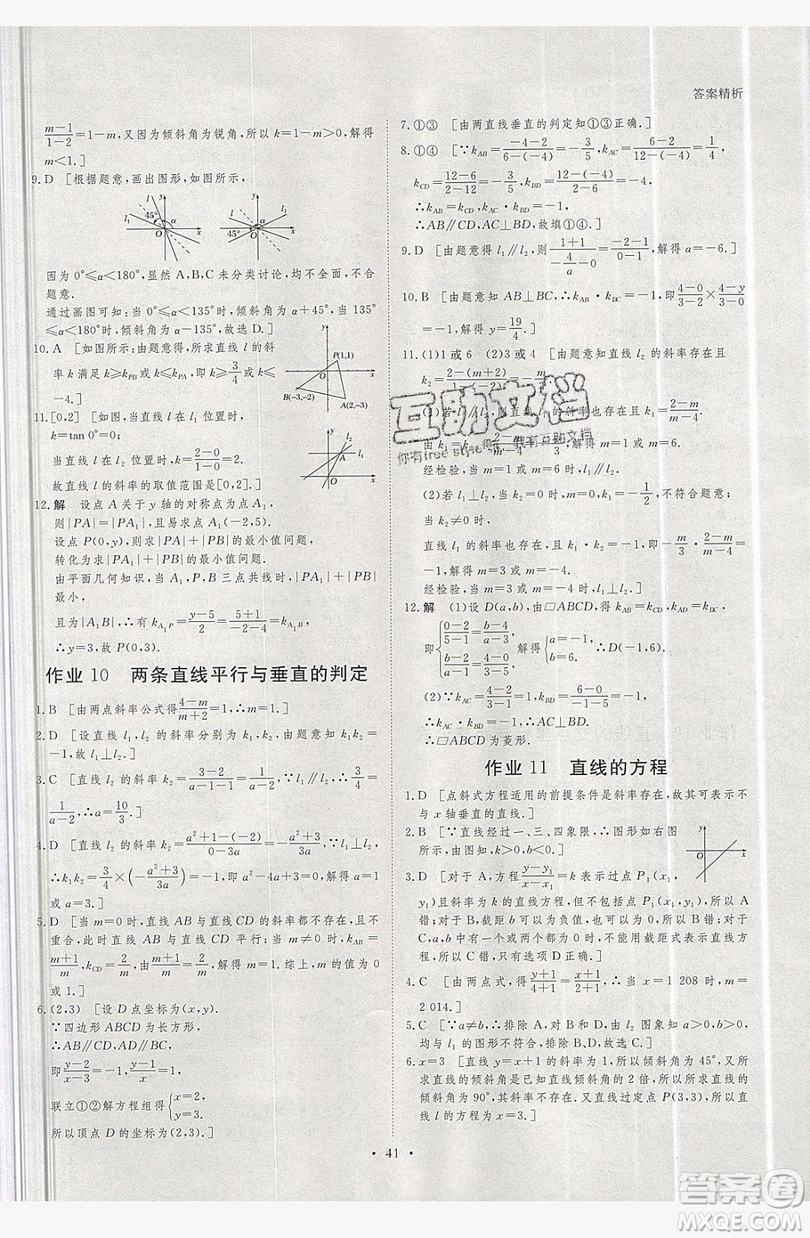 答案精析
(m−1)/(1−2)=1−m，又因为倾斜角为锐角，所以k=1−m>0，解得
m<1.]
9.D [根据题意，画出图形，如图所示，
因为0°≤α<180°，显然A,B,C未分类讨论，均不全面，不合
题意.
通过画图可知：当0°≤α<135°时，倾斜角为α+45°，当
135°≤α<180°时，倾斜角为α−135°，故选D.]
10.A [如图所示，由题意得，所求直线l的斜
率k满足k≥k_PB或k≤k_PA，即k≥3/4或k≤
−4.]
P(1,1)
B(−3,−2)
A(2,−3)
11.[0,2] [如图，当直线l在l₁位置时，
k=tan 0°=0；
当直线l在l₂位置时，k=(2−0)/(1−0)=2，
故直线l的斜率的取值范围是[0,2].]
12.解 设点A关于y轴的对称点为点A₁，
则|PA|=|PA₁|，且易求点A₁(−2,5).
设点P(0,y)，则|PA|+|PB|的最小值问题，
转化为求|PA₁|+|PB|的最小值问题.
由平面几何知识，当A₁,P,B三点共线时，|PA₁|+|PB|
最小，
且为|A₁B|，∴k_A₁P=(y−5)/2=(5+1)/(−2−1)=k_A₁B，
∴y=3，故P(0,3).
作业10 两条直线平行与垂直的判定
1.B [由两点斜率公式得(4−m)/(m+2)=1，∴m=1.]
2.D [设直线l₁,l₂的斜率分别为k₁,k₂，由题意知k₁·k₂=
−1，∴l₁⊥l₂.]
3.C [直线l₁的斜率k₁=(3−2)/(a−1)=1/(a−1)，∵l₁∥l₂，∴k₁=k₂，
即1/(a−1)=3/7，∴a=10/3.]
4.D [直线l₂的斜率k₂=(a²+1−(−2))/(0−3a)=−(a²+3)/(3a)，∵l₁⊥
l₂，∴k₁k₂=3/4×(−(a²+3)/(3a))=−1(a≠0)，整理，得a²−4a+3=
0，解得a=1或a=3.]
5.D [当m=0时，直线AB与直线CD斜率都不存在，且不
重合，此时直线AB与直线CD平行；当m≠0时，k_AB=
(m+1)/m，k_CD=2/m，则(m+1)/m=2/m，解得m=1.综上，m的值为0
或1.]
6.(2,3) [设D点坐标为(x,y).
∵四边形ABCD为长方形，
∴AB∥CD，AD∥BC.
即(y−2)/(x−3)=−1， ①
(y−2)/(x−1)=1， ②
联立①②解方程组得{x=2，y=3，
所以顶点D的坐标为(2,3).]
7.①③ [由两直线垂直的判定知①③正确.]
8.①④ [∵k_AB=(−4−2)/(6−(−4))=−3/5，k_AC=(6−2)/(12−(−4))=1/4，
k_CD=(12−6)/(2−12)=−3/5，k_BD=(12−(−4))/(2−6)=−4，
∴k_AB=k_CD，k_AC·k_BD=−1，
∴AB∥CD，AC⊥BD，故填①④.]
9.D [由题意得l₁∥l₂，则(1+1)/(−a/4−0)=(−2−1)/(0−a)，解得a=−6.]
10.B [由题意知AB⊥BC，∴k_AB·k_BC=−1，即(4−0)/(3−2)×(y−4)/(0−3)
=−1，解得y=19/4.]
11.(1)1或6 (2)3或−4 [由题意知直线l₂的斜率存在且
经检验，当m=1或m=6时，l₁∥l₂.
(2)若l₁⊥l₂，当k₂=0时，此时m=0，k₁=−1/2，不符合题意；
当k₂≠0时，
直线l₁的斜率存在且k₁·k₂=−1，即−m/3·(m−1)/(m−4)=−1，
解得m=3或m=−4.
经检验，当m=3或m=−4时，l₁⊥l₂.]
12.解 (1)设D(a,b)，由□ABCD，得k_AB=k_CD，k_AD=k_BC，
即{(0−2)/(5−1)=(b−4)/(a−3)，(b−2)/(a−1)=(4−0)/(3−5)，解得{a=−1，b=6.∴D(−1,6).
(2)∵k_AC=(4−2)/(3−1)=1，k_BD=(6−0)/(−1−5)=−1，
∴k_AC·k_BD=−1，∴AC⊥BD，
∴□ABCD为菱形.
作业11 直线的方程
1.D [点斜式方程适用的前提条件是斜率存在，故其可表示不
与x轴垂直的直线.]
2.B [∵直线经过一、三、四象限，∴图形如图
所示，由图知，k>0，b<0.]
3.D [对于A，方程(y−y₁)/(x−x₁)=k表示过点P₁(x₁,
y₁)且斜率为k但不包括点P₁(x₁,y₁)的直线，所以A
错；对于B，截距b可以为负值，也可以为0，所以B错；对于
C，a,b可能都等于0，此时不能用截距式表示直线方
程，所以C错，只有选项D正确.]
4.C [由两点式，得(y+1)/(4+1)=(x+1)/(2+1)，当x=1 208时，m=
2 014.]
5.C [∵a≠b，∴排除A,D，由l₁,l₂图象可知，ab<0，B
均与l₁的图形不符合，排除B，选C.]
6.x=3 [直线y=x+1的斜率为1，所以倾斜角为45°，又所
求直线的倾斜角是已知直线倾斜角的2倍，所以所求直线的
倾斜角为90°，其斜率不存在.又直线过定点P(3,3)，所以直
线l的方程为x=3.]
互助文档
41
答案圈
MXQE.COM